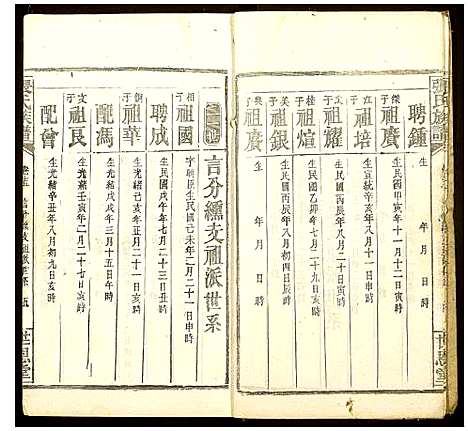 張氏族譜
世恩堂
聘鍾
生 年 月 日 時
傑子
祖廣
生民國甲寅年十一月十二日亥時
立子
祖培
生宣統辛亥年二月二十一日辰時
文子
祖耀
生 年 月 日 時
桂子
祖煊
生民國乙卯年七月二十九日寅時
美子
祖銀
生民國丙辰年八月初四日辰時
子
祖賡
生 年 月 日 時
言分繻支祖派世系
相子
祖國
字聘臣生民國己未年二月二十一日申時
聘成
生民國戊午年七月二十三日戌時
子
祖華
生光緒戊戌年三月十五日午時
配馮
生光緒壬寅年二月二十七日亥時
文子
祖良
生光緒己亥年二月二十二日亥時
配曾
生光緒辛丑年八月初九日亥時
張氏族譜
世恩堂